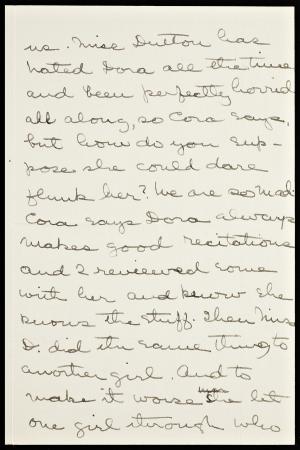 us. Miss Dutton has
hated Dora all the time
and been perfectly horrid
all along, so Cora says,
but how do you sup-
pose she could dare
flunk her? We are so mad
Cora says Dora always
makes good recitations
and I reviewed some
with her and know she
knows the stuff. Then Miss
D. did the same thing to
another girl. And to
make it worse she let
one girl through who